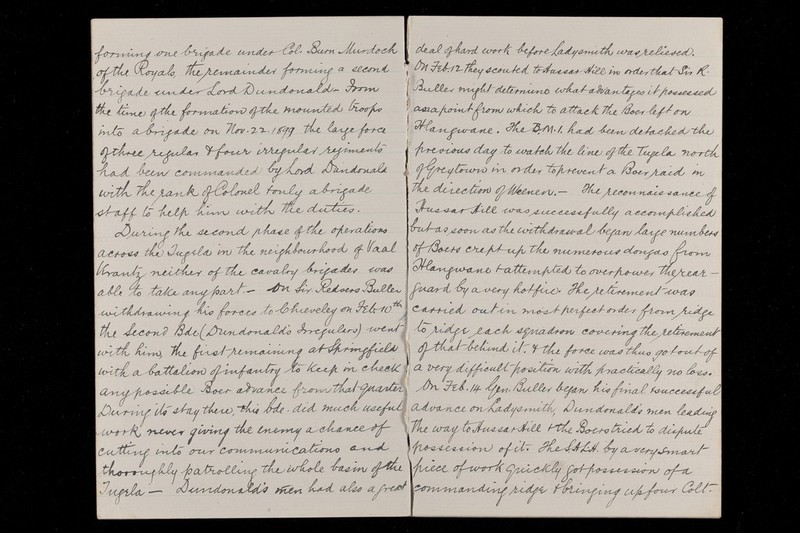 forming one brigade under Col. Burn Murdoch
of the Royals, the remainder forming a second
brigade under Lord Dundonald - From
the time of the formation of the mounted troops
into a brigade on Nov. 22. 1899 the large force
of three regular & four irregular regiments
had been commanded by Lord Dundonald
with the rank of Colonel & only a brigade
staff to help him with the duties.
During the second phase of the operations
across the Tugela in the neighbourhood of Vaal
Krantz neither of the cavalry brigades was
able to take any part. - On Sir Redvers Buller
withdrawing his forces to Chieveley on Feb. 10th
the Second Bde (Dundonald's Irregulars) went
with him, the first remaining at Springfield
with a battalion of infantry to keep in check
any possible Boer advance from that quarter
During its stay there, this bde. did much useful
work never giving the enemy a chance of
cutting into our communications and
thoroughly patrolling the whole basin of the
Tugela - Dundonald's men had also a great
deal of hard work before Ladysmith was relieved.
On Feb. 12 they scouted to Hussar Hill in order that Sir R.
Buller might determine what advantages it possessed
as a point from which to attack the Boer left on
Hlangwane. The B.M.I. had been detached the
previous day to watch the line of the Tugela north
of Greytown in order to prevent a Boer raid in
the direction of Weenen. - The reconnaissance of
Hussar Hill was successfully accomplished
but as soon as the withdrawal began large numbers
of Boers crept up the numerous dongas from
Hlangwane & attempted to overpower the rear -
guard by a very hot fire. The retirement was
carried out in most perfect order from ridge
to ridge, each squadron covering the retirement
of that behind it, & the force was thus got out of
a very difficult position with practically no loss.
On Feb. 14 Gen. Buller began his final & successful
advance on Ladysmith, Dundonald's men leading
the way to Hussar Hill & the Boers tried to dispute
possession of it. The S.A.L.H. by a very smart
piece of work quickly got possession of a
commanding ridge & bringing up four Colt-